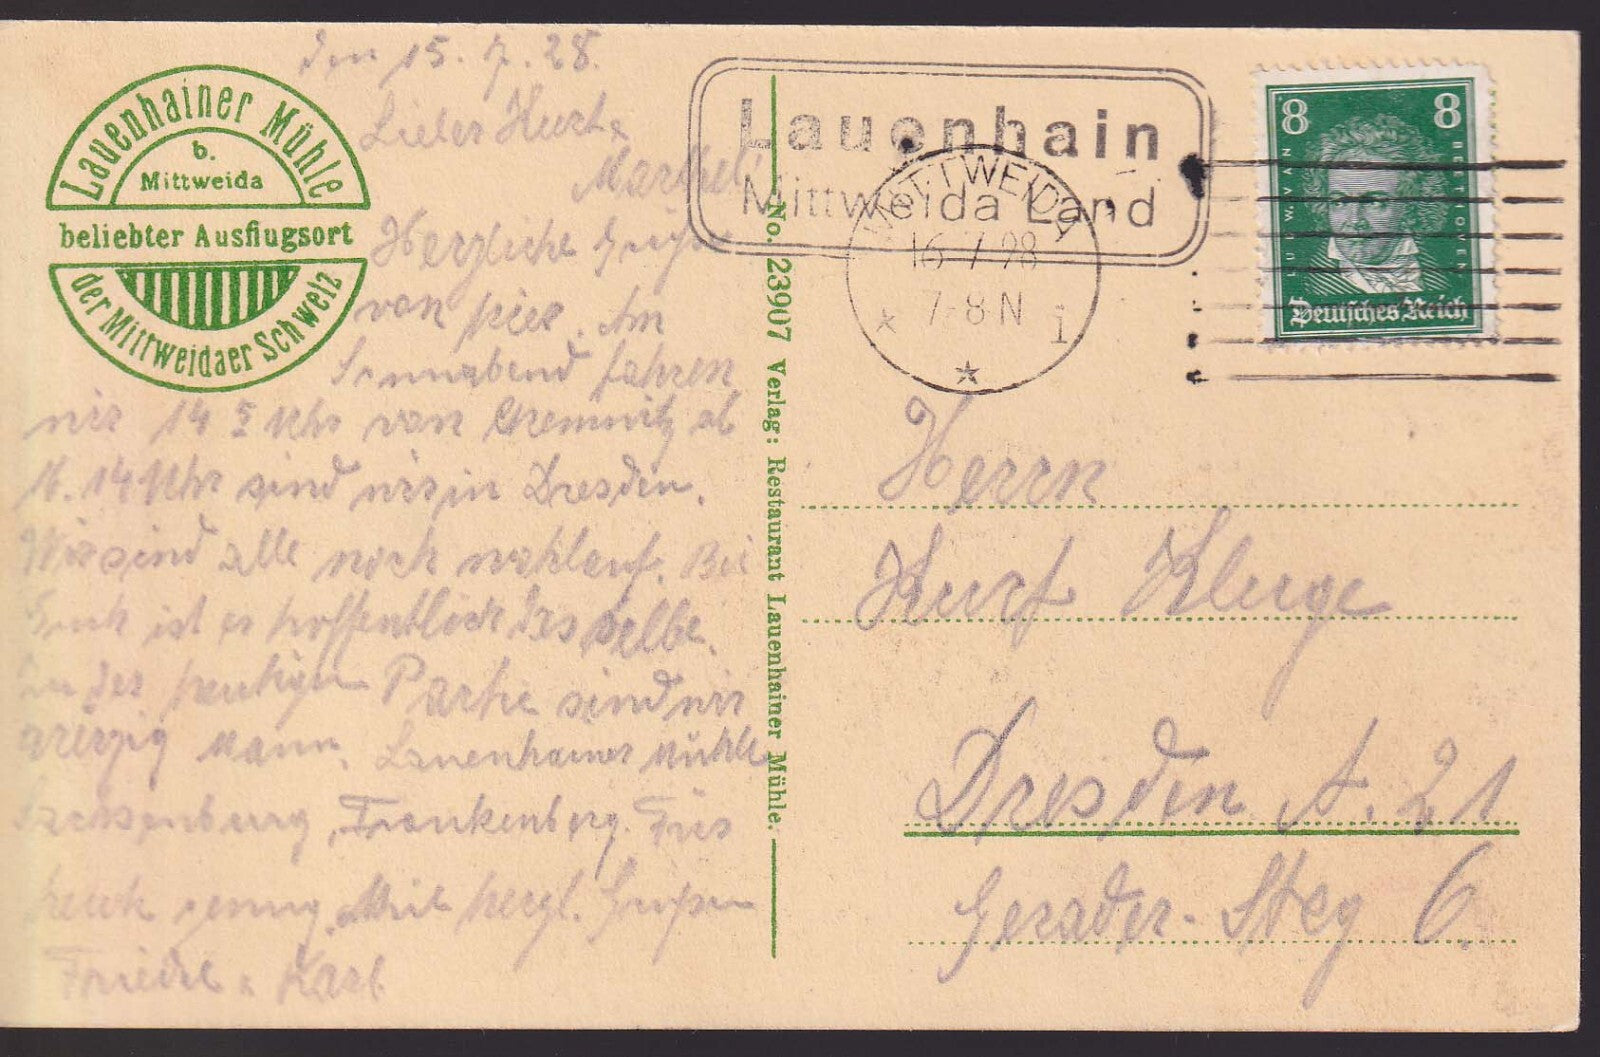 Lauenhainer Mühle
b.
Mittweida
beliebter Ausflugsort
der Mittweidaer Schweiz
den 15. 7. 28.
Lieber Kurt &
Herzliche Grüße
von hier. Am
Sonnabend fahren
wir 14 Uhr von Chemnitz ab
16.14 Uhr sind wir in Dresden.
Wir sind alle noch wohlauf. Bei
Euch ist es hoffentlich das selbe.
In der heutigen Partie sind wir
vierzig Mann. Lauenhainer Mühle
Sachsenburg, Frankenberg. Für
heute genug. Mit herzl. Grüßen
Friedel & Karl
No. 23907 Verlag: Restaurant Lauenhainer Mühle.
Lauenhain
Mittweida Land
MITTWEIDA
16 7 28
7-8 N
* * 1
8 8
LUDW. VAN BEETHOVEN
Deutsches Reich
Herrn
Kurt Kluge
Dresden A. 21
Gerader-Steg 6.